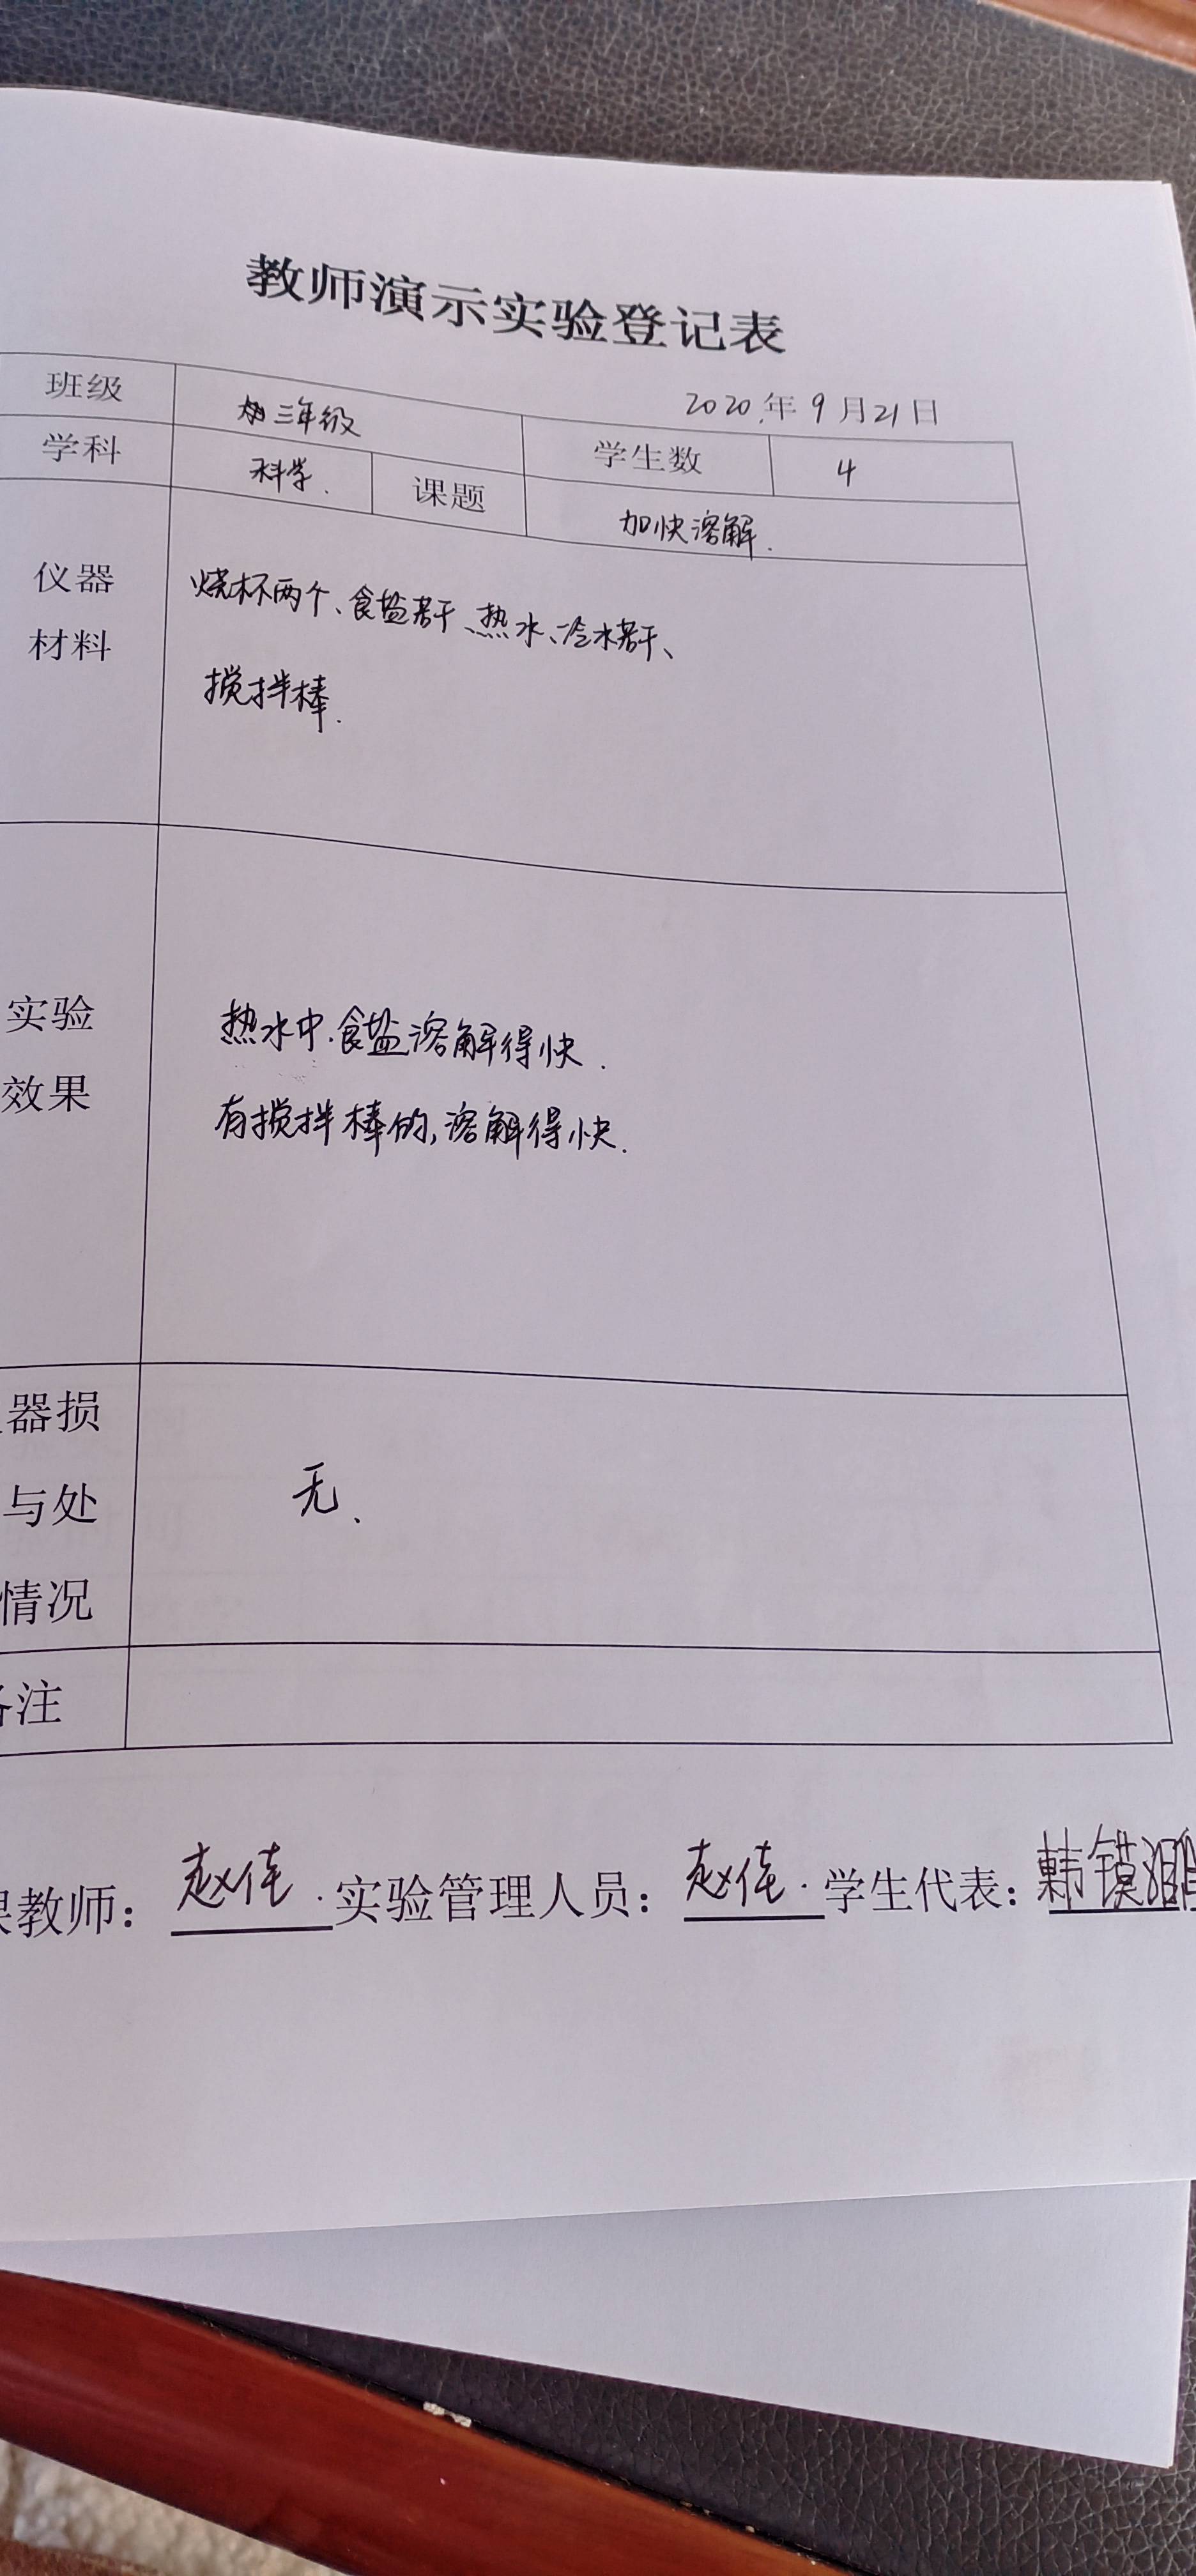 教师演示实验登记表
2020年9月21日
班级 三年级 学生数 4
学科 科学. 课题 加快溶解.
仪器
材料
烧杯两个、食盐若干、热水、冷水若干、
搅拌棒.
实验
效果
热水中.食盐溶解得快.
有搅拌棒的,溶解得快.
器损
与处
情况
无、
备注
课教师： 赵佳. 实验管理人员： 赵佳. 学生代表：